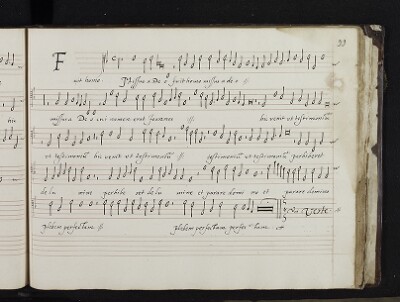 33
F
uit homo missus a Deo fuit homo missus a deo //
missus a Deo cui nomen erat Joannes // hic venit ut testimoniũ
hi
ut testimoniũ hic venit ut testimoniũ // testimoniũ ut testimoniũ perhiberet
de lu mine perhibe ret de lu mine et parare domi no et parare domino
plebem perfectam // plebem perfectam perfec tam
vote